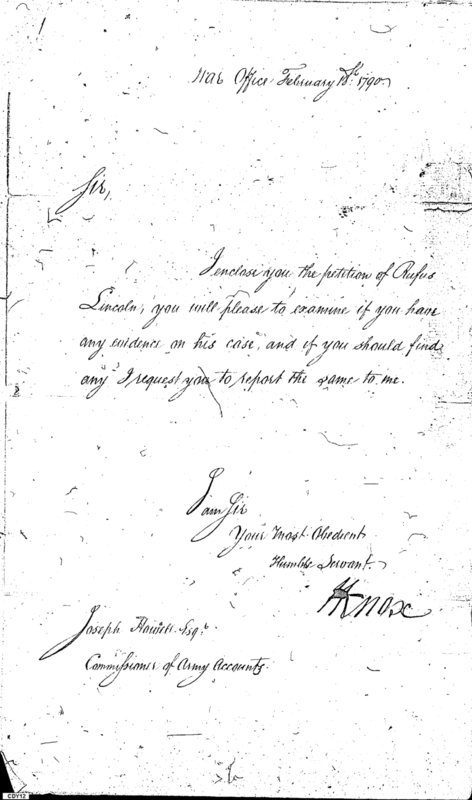 War Office February 18th 1790
Sir,
I enclose you the petition of Rufus
Lincoln, you will please to examine if you have
any evidence on his case, and if you should find
any I request you to report the same to me.
I am Sir
Your Most Obedient
Humble Servant
HKnox
Joseph Howell Esqr
Commissioner of Army Accounts.
CDY12